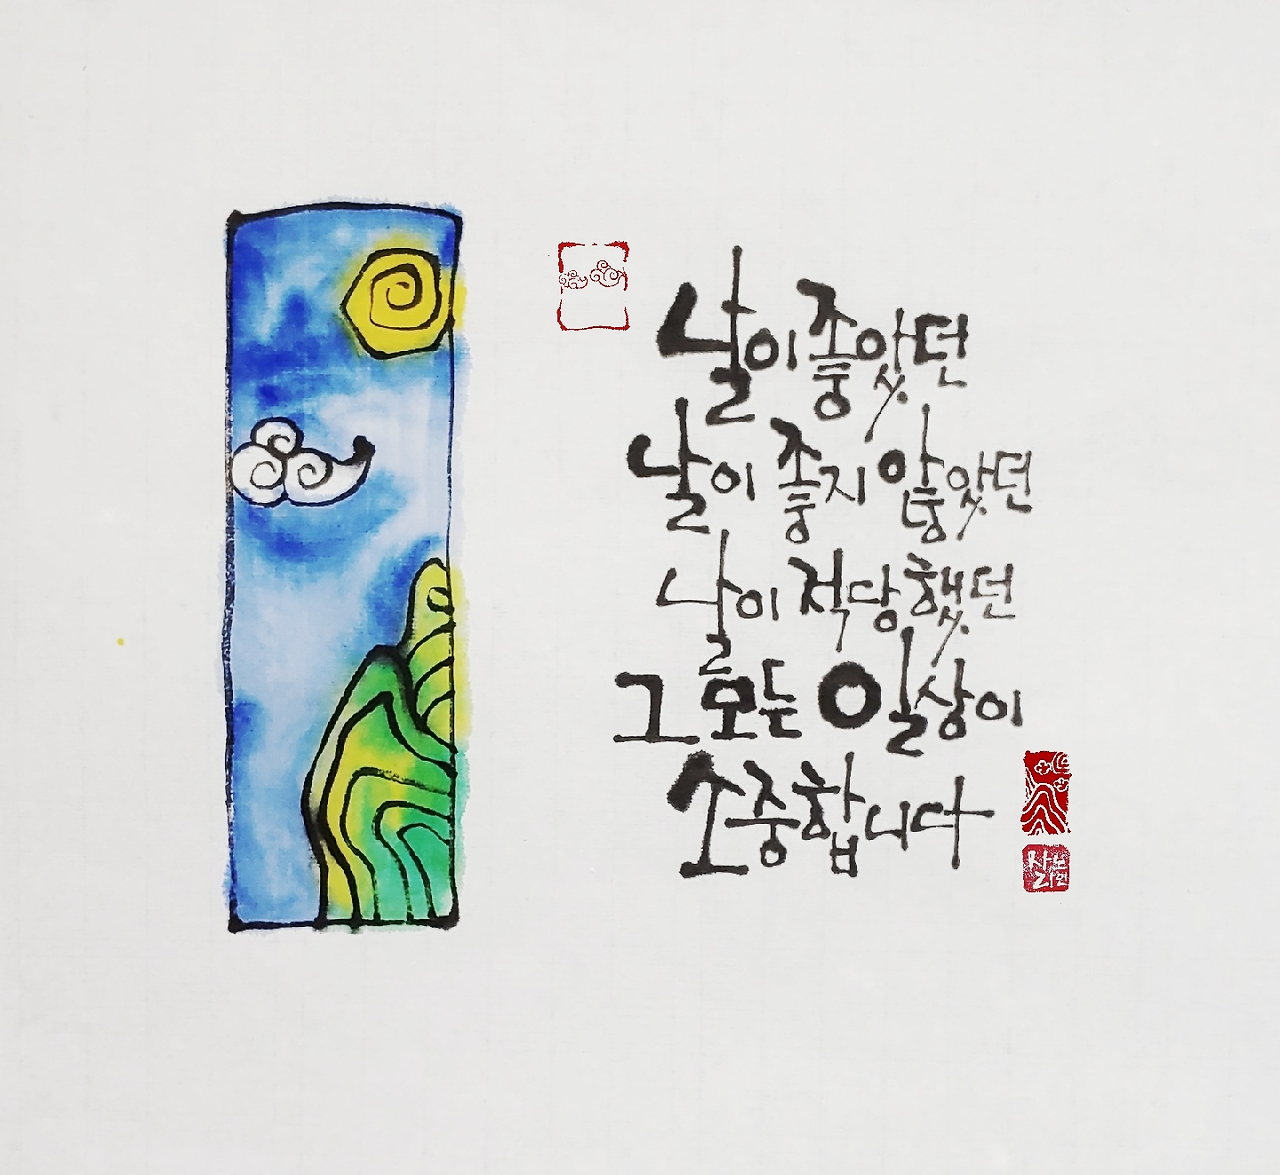 날이 좋았던
날이 좋지 않았던
날이 적당했던
그 모든 일상이
소중합니다